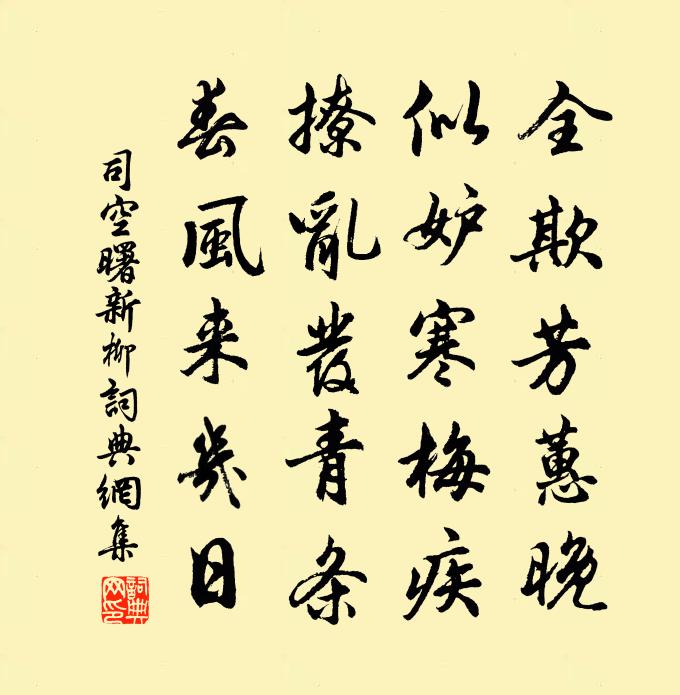 全欺芳蕙晚
似妒寒梅疾
撩亂發青条
春風来幾日
司空曙新柳詞典網集
詞典網印